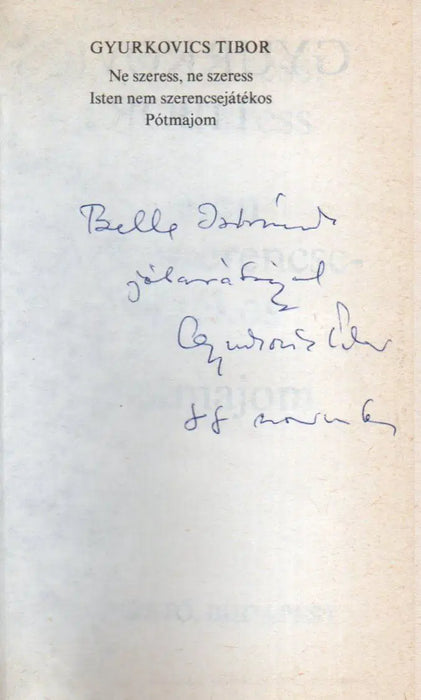 GYURKOVICS TIBOR
Ne szeress, ne szeress
Isten nem szerencsejátékos
Pótmajom
Belle Istvánnak
jóbarátsággal
Gyurkovics Tibor
88 november